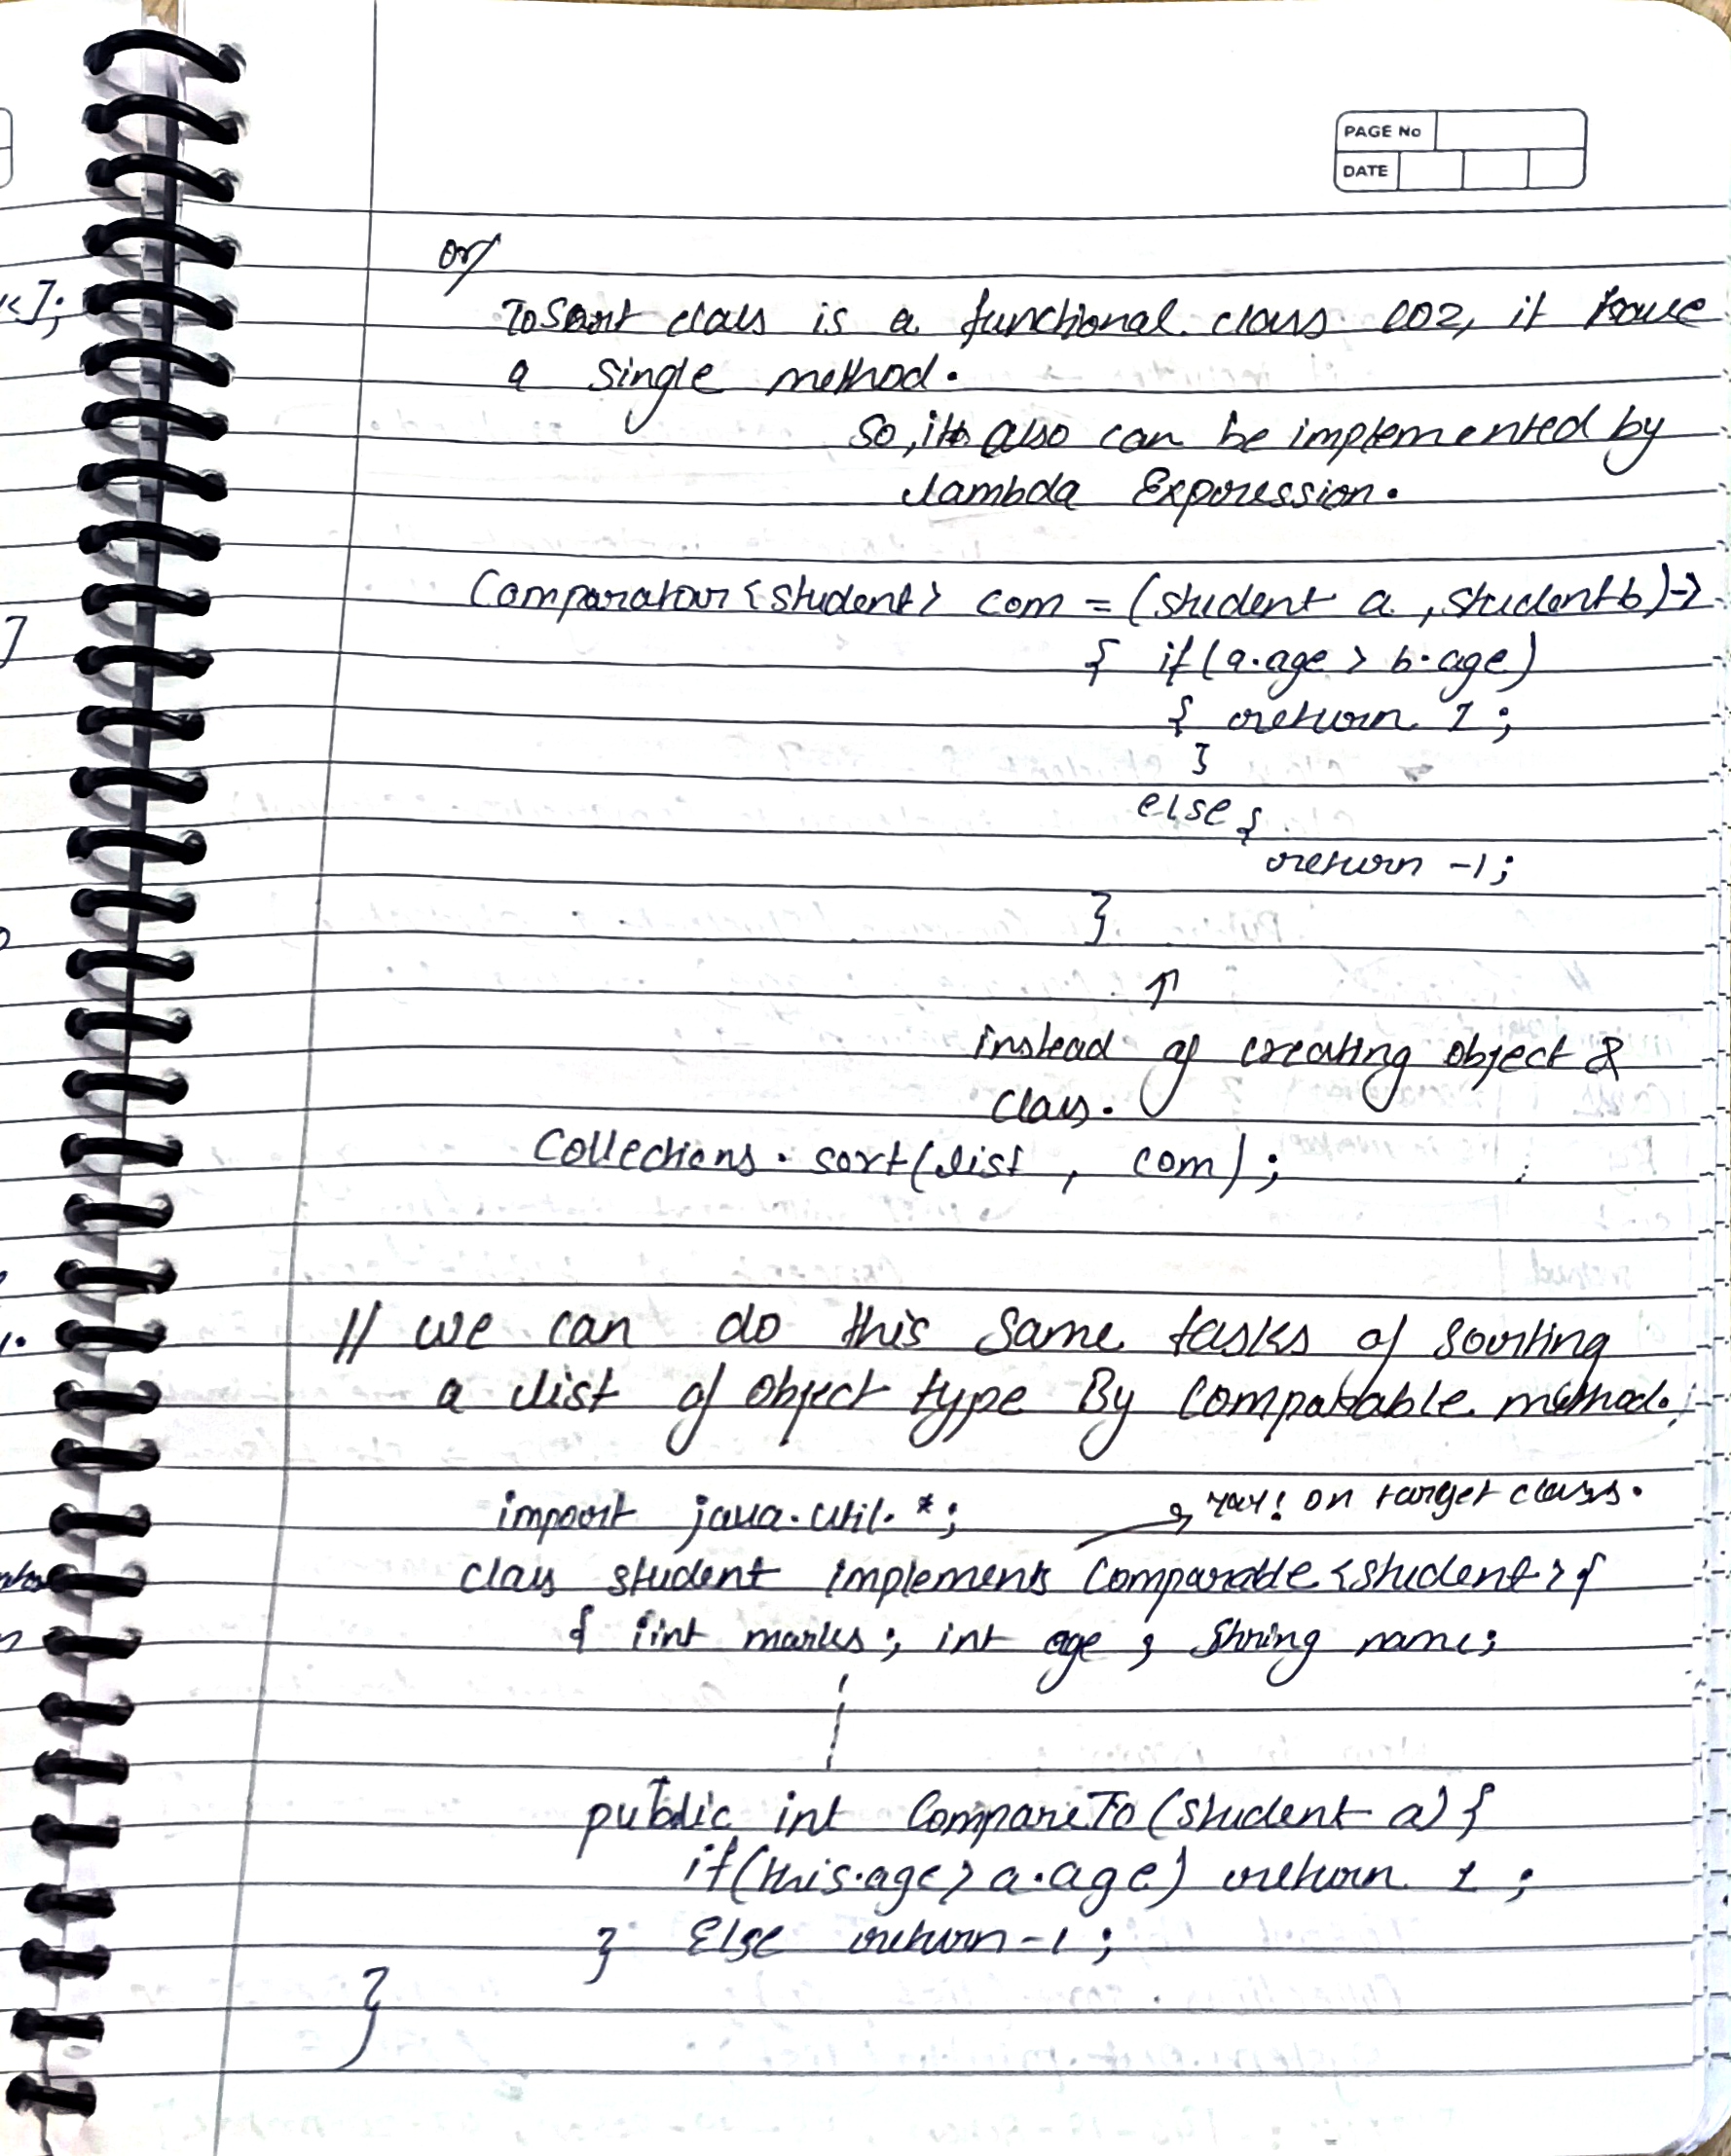 PAGE No
DATE
or/
ToSort class is a functional class coz, it have
a single method.
so, it also can be implemented by
lambda Expression.
Comparator<student> com = (student a , student b)->
{ if(a.age > b.age)
{ return 1 ;
}
else {
return -1;
}
↑
instead of creating object &
class.
Collections . sort(list , com) ;
// we can do this same tasks of sorting
a list of object type By Comparable method.
→ yay! on target class.
import java.util. *;
class student implements Comparable <student> {
{ int marks ; int age ; String name;
public int CompareTo (student a) {
if(this.age > a.age) return 1 ;
} Else return -1 ;
}